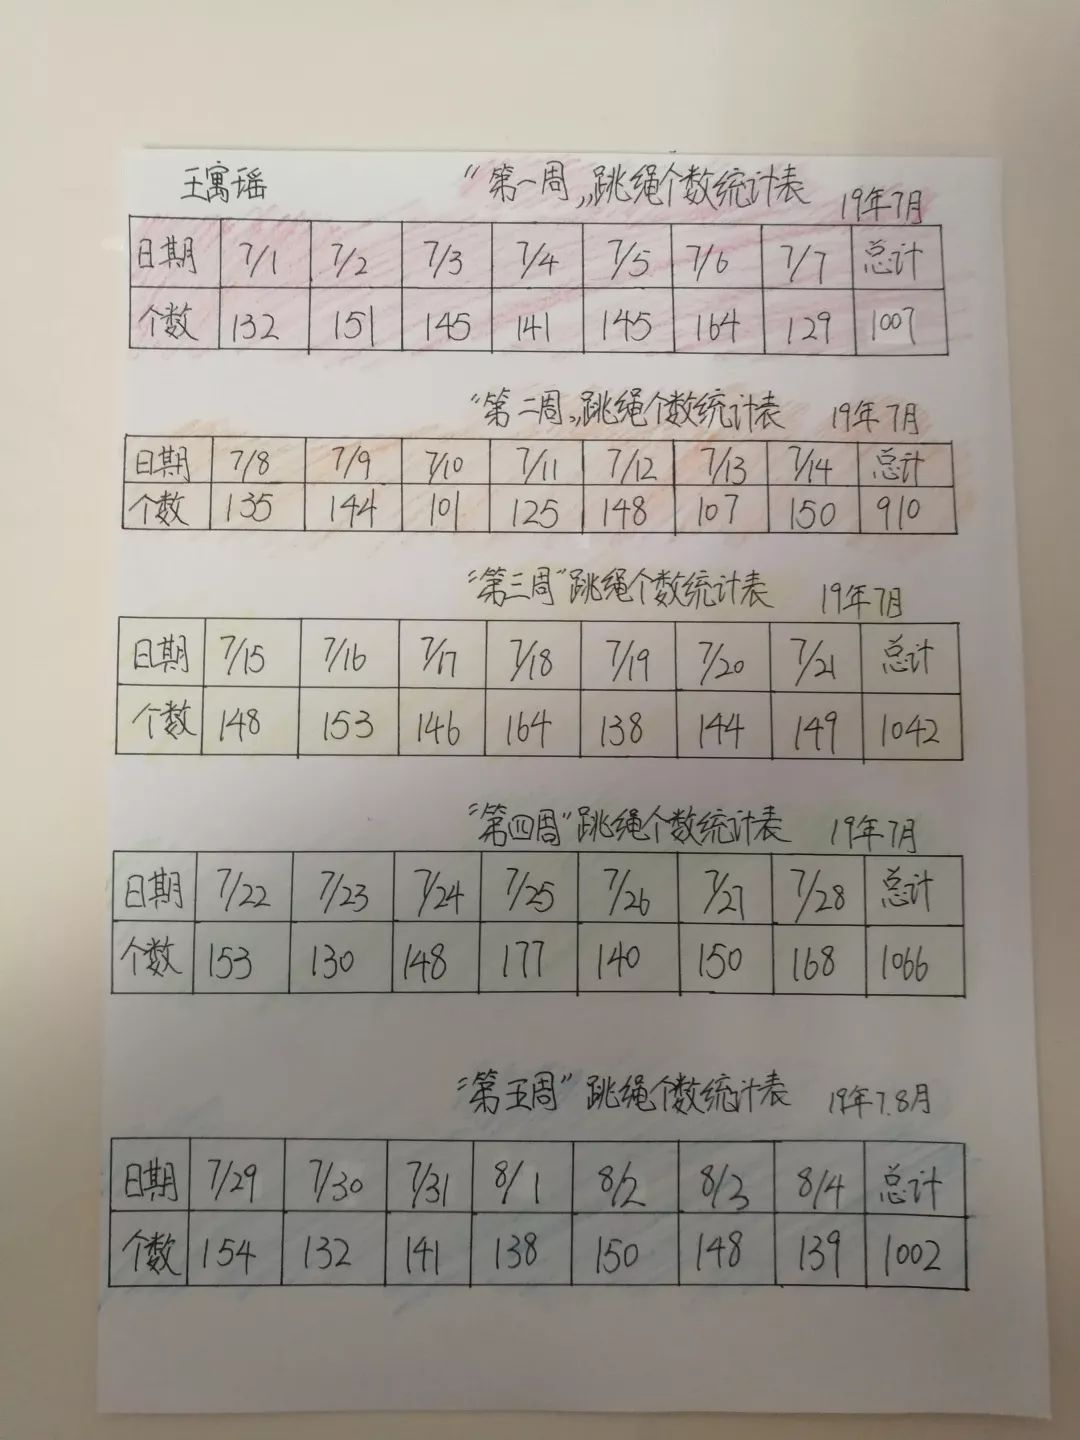 王寓瑶 "第一周„跳绳个数统计表 19年7月
日期 7/1 7/2 7/3 7/4 7/5 7/6 7/7 总计
个数 132 151 145 141 145 164 129 1007
"第二周„跳绳个数统计表 19年7月
日期 7/8 7/9 7/10 7/11 7/12 7/13 7/14 总计
个数 135 144 101 125 148 107 150 910
"第三周"跳绳个数统计表 19年7月
日期 7/15 7/16 7/17 7/18 7/19 7/20 7/21 总计
个数 148 153 146 164 138 144 149 1042
"第四周"跳绳个数统计表 19年7月
日期 7/22 7/23 7/24 7/25 7/26 7/27 7/28 总计
个数 153 130 148 177 140 150 168 1066
"第五周"跳绳个数统计表 19年7.8月
日期 7/29 7/30 7/31 8/1 8/2 8/3 8/4 总计
个数 154 132 141 138 150 148 139 1002